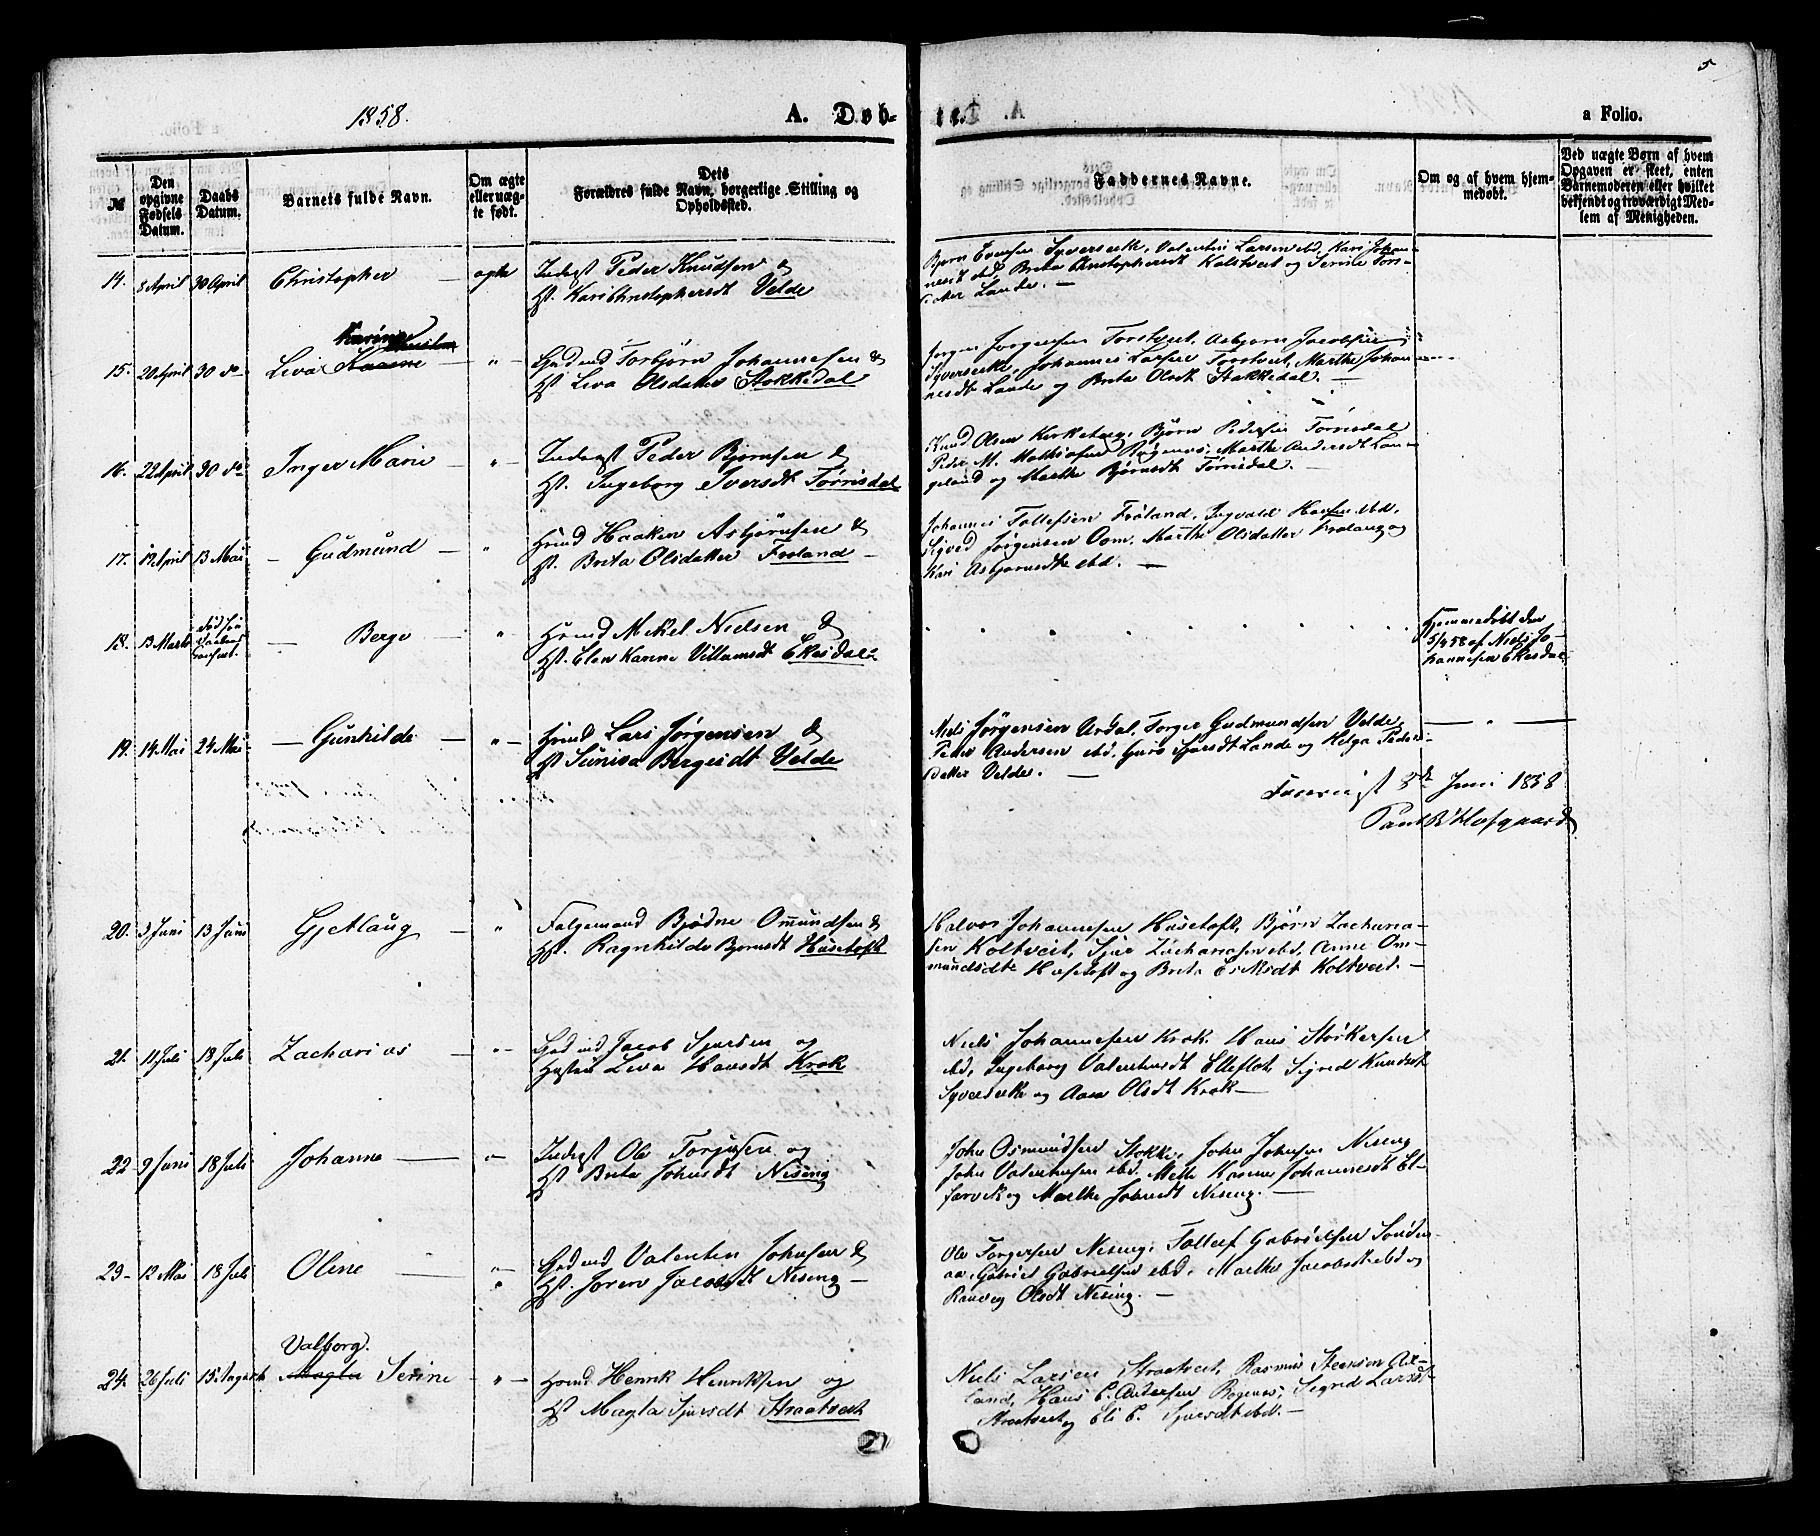 1858.
A. Døb-
te.
a Folio.
5
№
Den opgivne Fødsels Datum.
Daabs Datum.
Barnets fulde Navn.
Om ægte eller uægte født.
Dets Forældres fulde Navn, borgerlige Stilling og Opholdssted.
Faddernes Navne.
Om og af hvem hjemmedøbt.
Ved uægte Børn af hvem Opgaven er skeet, enten Barnemoderen eller hvilket bekjendt og troværdigt Medlem af Menigheden.
14. 8 April 30 April Christopher ægte Inderst Peder Knudsen &
Hst. Kari Christophersdt Velde
Bjørn Evensen Syverseike, Valentin Larsen ebd, Kari Johan-
nesdt ebd, Brita Christophersdt Kolstveit og Serine Tors-
datter Lande. —
Karine
15. 20 April 30 do Liva " Grd md Torbjørn Johannesen &
Hst. Liva Olsdatter Stokkedal
Jørgen Jørgensen Torstveit, Asbjørn Jacobsen
Syverseike, Johannes Larsen Torstveit, Marthe Johan-
nesdt Lande og Brita Olsdt Stokkedal. —
16. 22 April 30 do Inger Marie " Inderst Peder Bjørnsen &
Hst. Ingeborg Iversdt Tørrisdal
Knud Olsen Kirkehaug, Bjørn Pedersen Tørrisdal
Peder M. Mathiasen Røgenes, Marthe Andersdt Lan-
geland og Marthe Bjørnsdt Tørrisdal. —
17. 19 April 13 Mai Gudmund " Hmd Haaken Asbjørnsen &
Hst. Brita Olsdatter Frøland —
Johannes Tollefsen Frøland, Ingvald Hansen ebd,
Sigved Jørgensen Oom, Marthe Olsdatter Frøland og
Kari Asbjørnsdt ebd. —
18. 13 Marts Berge " Hmd Mikel Nielsen &
Hst. Elen Karine Villumsdt Ekesdal
Hjemmedøbt den
5/4 58 af Niels Jo-
hannesen Ekesdal
19. 14 Mai 24 Mai Gunhilde " Hmd Lars Jørgensen &
Hst Suniva Bergesdt Velde
Niels Jørgensen Urdal, Torger Gudmundsen Velde,
Peder Andersen ebd, Guro Sjursdt Lande og Helga Peders-
datter Velde. —
5te Juni 1858
Hofgaard
20. 3 Juni 13 Juni Gjetlaug " Følgemand Bjødne Omundsen &
Hst. Ragnhilde Bjørnsdt Husetoft
Halvor Johannesen Husetoft, Bjørn Zacharia-
sen Koltveit, Sjur Zachariasen ebd, Anne Om-
mundsdt Husetoft og Brita Eriksdt Koltveit. —
21. 11 Juli 18 Juli Zacharias " Grd md Jacob Sjursen og
Hustru Liva Hansdt Krok
Niels Johannesen Krok, Hans Størkersen
ebd, Ingeborg Valentinsdt Elleflot, Sigred Knudsdt
Syverseike og Aasa Olsdt Krok —
22 9 Juni 18 Juli Johanne " Inderst Ole Torjersen og
Hst Brita Johnsdt Nising
John Osmundsen Stokke, John Johnsen Nising
John Valentinsen ebd. Mette Karine Johannesdt El-
farvik og Marthe Johnsdt Nising. —
23 12 Mai 18 Juli Oline " Grd md Valentin Johnsen &
Hst. Joren Jacobsdt Nising —
Ole Torgersen Nising, Tollef Gabrielsen Sønden-
aa, Gabriel Gabrielsen ebd, Marthe Jacobsdt ebd og
Ranveig Olsdt Nising. —
Valborg.
24. 26 Juli 15 August Magta Serine " Hmd Henrik Henriksen og
Hst Magta Sjursdt Straatveit
Niels Larsen Straatveit, Rasmus Steensen Ar-
land, Hans E. Andersen Røgenes, Sigred Larsdt
Straatveit og Eli E. Sjursdt ebd. —